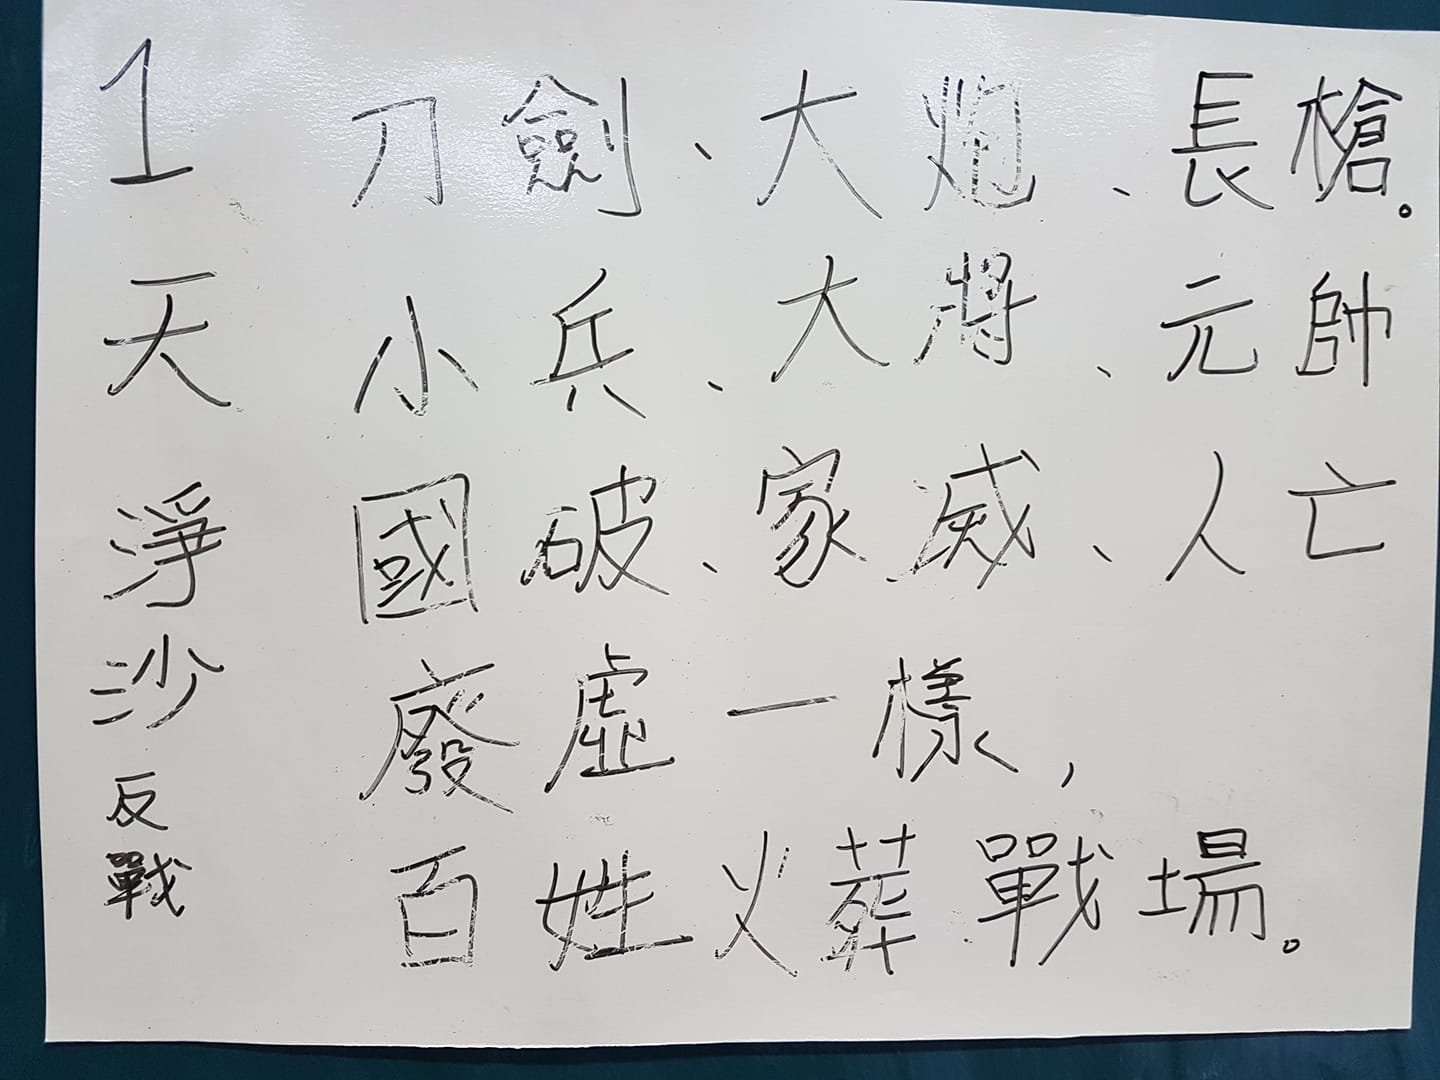 1
天淨沙 反戰
刀劍、大炮、長槍。
小兵、大將、元帥
國破、家威、人亡
廢虛一樣，
百姓火葬戰場。